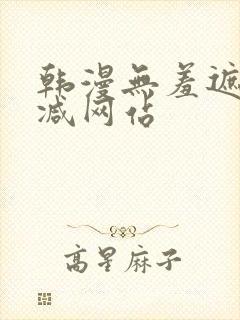 韩漫無羞遮
减网佔
高星麻子